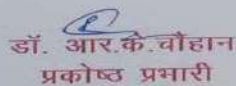 डॉ. आर.के.चौहान
प्रकोष्ठ प्रभारी